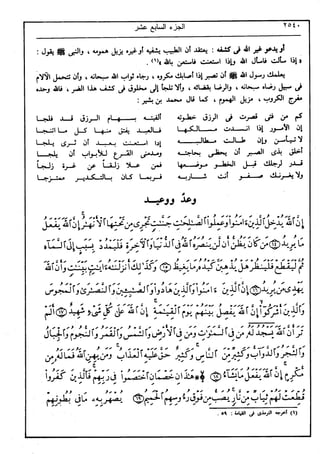 ٢٥٤٠ الجزء السابع عشر
أو يدعو غير الله فى كشفه : يعتقد أن الطبيب يشفيه أو غيره يزيل همومه ، والنبى ﷺ يقول :
« إذا سألت فاسأل الله وإذا استعنت فاستعن بالله »(١) .
يعلمك رسول الله ﷺ أن تصبر إذا أصابك مكروه ، رجاء ثواب الله سبحانه ، وأن تتحمل الآلام
فى سبيل رضاء سبحانه ، والرضا بقضائه ، وألا تلجأ إلى مخلوق فى كشف هذا الضر ، فالله وحده
مفرج الكروب ، مزيل الهموم ، كما قال محمد بن بشير :
كم من فتى قصرت فى الرزق خطوته ألفيته بسهام الرزق قد فلجا
إن الأمور إذا انسدت مسالكها فالصبر يفتق منها كل ما ارتتجا
لا تيأسن وإن طالت مطالبة إذا استعنت بصبر أن ترى فرجا
أخلق بذى الصبر أن يحظى بحاجته ومدمن القرع للأبواب أن يلجا
قدر لرجلك قبل الخطو موضعها فمن علا زلقا عن غرة زلجا
ولا يغرنك صفو أنت شاربه فربما كان بالتكدير ممتزجا
وعد ووعيد
إِنَّ ٱللَّهَ يُدْخِلُ ٱلَّذِينَ ءَامَنُوا۟ وَعَمِلُوا۟ ٱلصَّٰلِحَٰتِ جَنَّٰتٍ تَجْرِى مِن تَحْتِهَا ٱلْأَنْهَٰرُ إِنَّ ٱللَّهَ يَفْعَلُ
مَا يُرِيدُ ﴿١٤﴾ مَن كَانَ يَظُنُّ أَن لَّن يَنصُرَهُ ٱللَّهُ فِى ٱلدُّنْيَا وَٱلْءَاخِرَةِ فَلْيَمْدُدْ بِسَبَبٍ إِلَى ٱلسَّمَآءِ
ثُمَّ لْيَقْطَعْ فَلْيَنظُرْ هَلْ يُذْهِبَنَّ كَيْدُهُۥ مَا يَغِيظُ ﴿١٥﴾ وَكَذَٰلِكَ أَنزَلْنَٰهُ ءَايَٰتٍۭ بَيِّنَٰتٍ وَأَنَّ ٱللَّهَ
يَهْدِى مَن يُرِيدُ ﴿١٦﴾ إِنَّ ٱلَّذِينَ ءَامَنُوا۟ وَٱلَّذِينَ هَادُوا۟ وَٱلصَّٰبِـِٔينَ وَٱلنَّصَٰرَىٰ وَٱلْمَجُوسَ
وَٱلَّذِينَ أَشْرَكُوٓا۟ إِنَّ ٱللَّهَ يَفْصِلُ بَيْنَهُمْ يَوْمَ ٱلْقِيَٰمَةِ إِنَّ ٱللَّهَ عَلَىٰ كُلِّ شَىْءٍ شَهِيدٌ ﴿١٧﴾ أَلَمْ
تَرَ أَنَّ ٱللَّهَ يَسْجُدُ لَهُۥ مَن فِى ٱلسَّمَٰوَٰتِ وَمَن فِى ٱلْأَرْضِ وَٱلشَّمْسُ وَٱلْقَمَرُ وَٱلنُّجُومُ وَٱلْجِبَالُ
وَٱلشَّجَرُ وَٱلدَّوَآبُّ وَكَثِيرٌ مِّنَ ٱلنَّاسِ وَكَثِيرٌ حَقَّ عَلَيْهِ ٱلْعَذَابُ وَمَن يُهِنِ ٱللَّهُ فَمَا لَهُۥ مِن
مُّكْرِمٍ إِنَّ ٱللَّهَ يَفْعَلُ مَا يَشَآءُ ﴿١٨﴾ هَٰذَانِ خَصْمَانِ ٱخْتَصَمُوا۟ فِى رَبِّهِمْ فَٱلَّذِينَ كَفَرُوا۟
قُطِّعَتْ لَهُمْ ثِيَابٌ مِّن نَّارٍ يُصَبُّ مِن فَوْقِ رُءُوسِهِمُ ٱلْحَمِيمُ ﴿١٩﴾ يُصْهَرُ بِهِۦ مَا فِى بُطُونِهِمْ
(١) أخرجه الترمذى فى القيامة : ٥٩ .